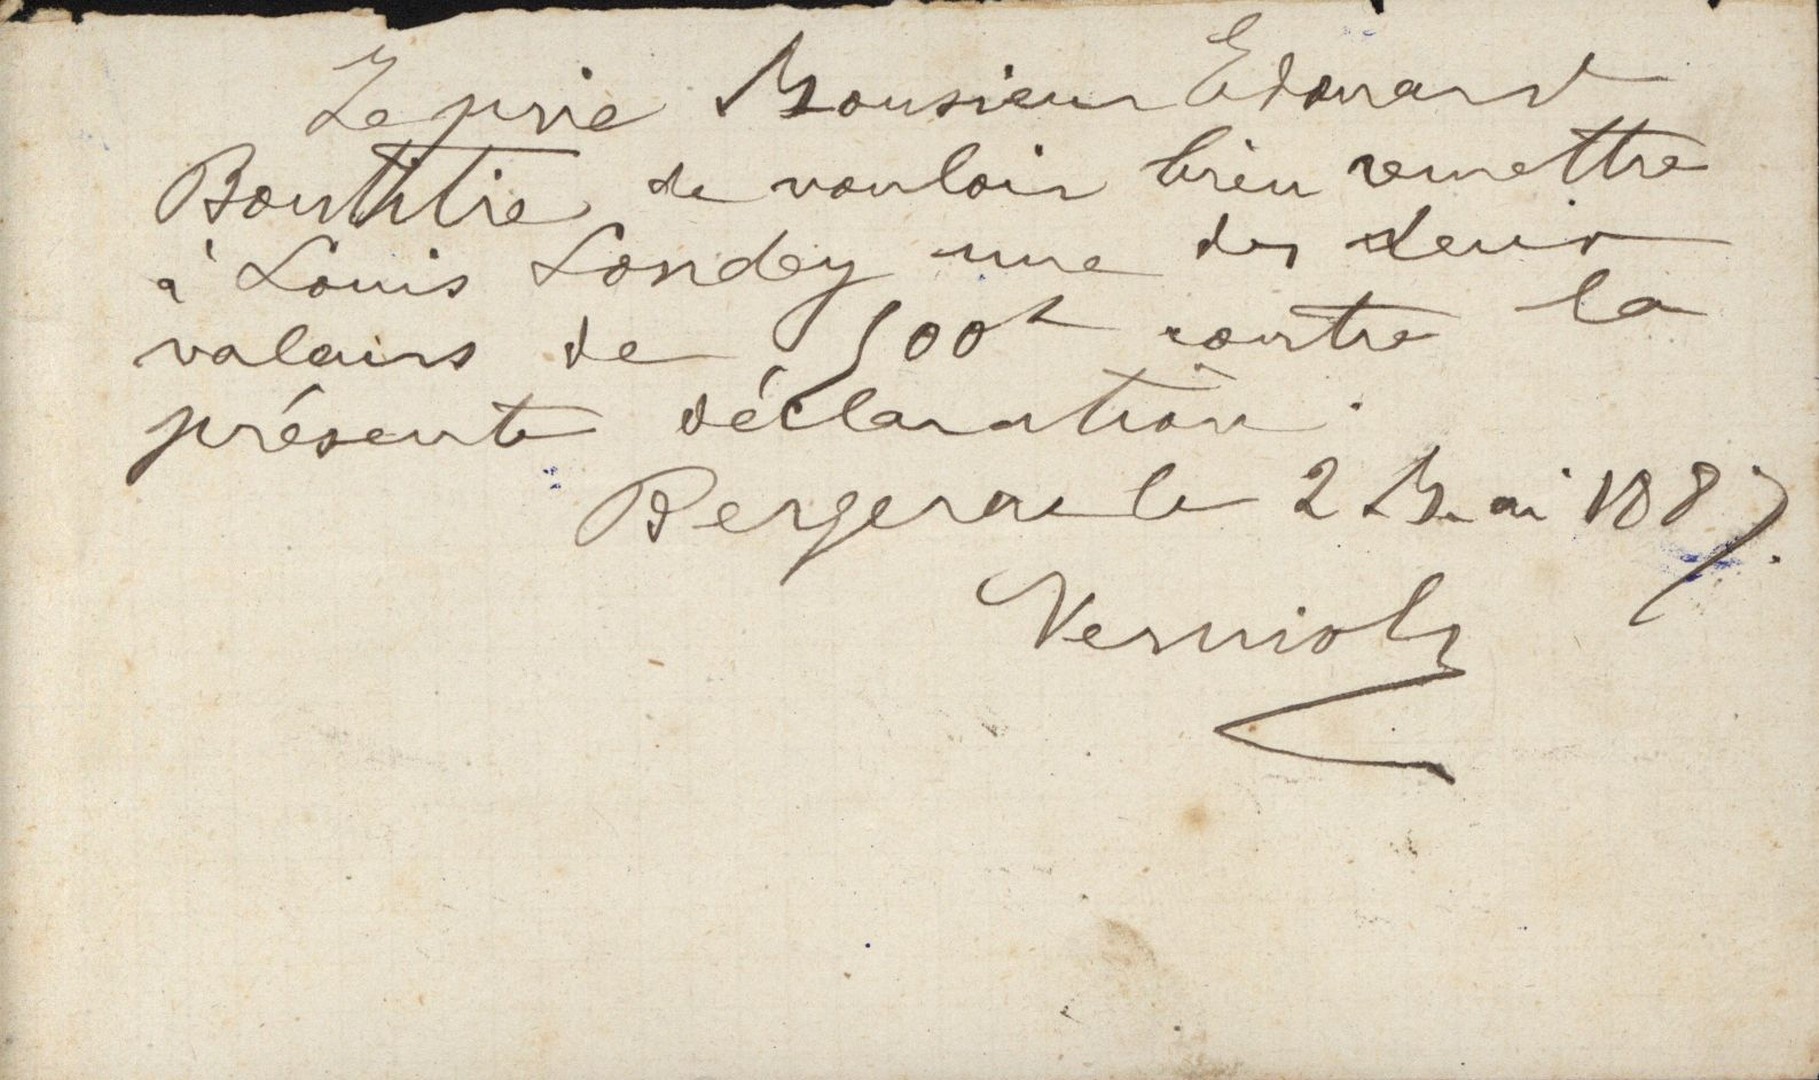 Je prie Monsieur Edouard
Bouthtre de vouloir bien remettre
à Louis Londey une des deux
valeurs de 500f contre la
présente déclaration.
Bergerac le 2 Mai 1887.
Verniols